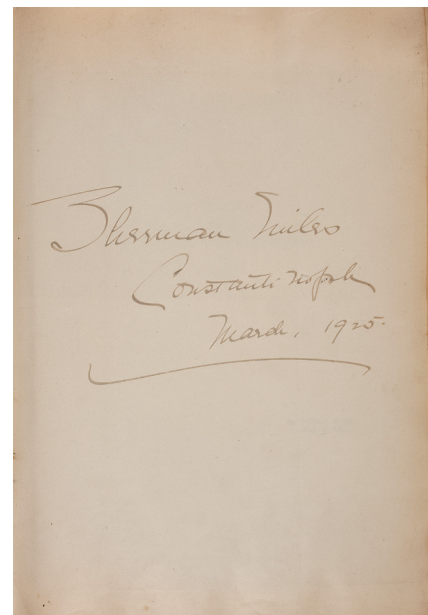 Sherman Miles
Constantinople
March, 1925.